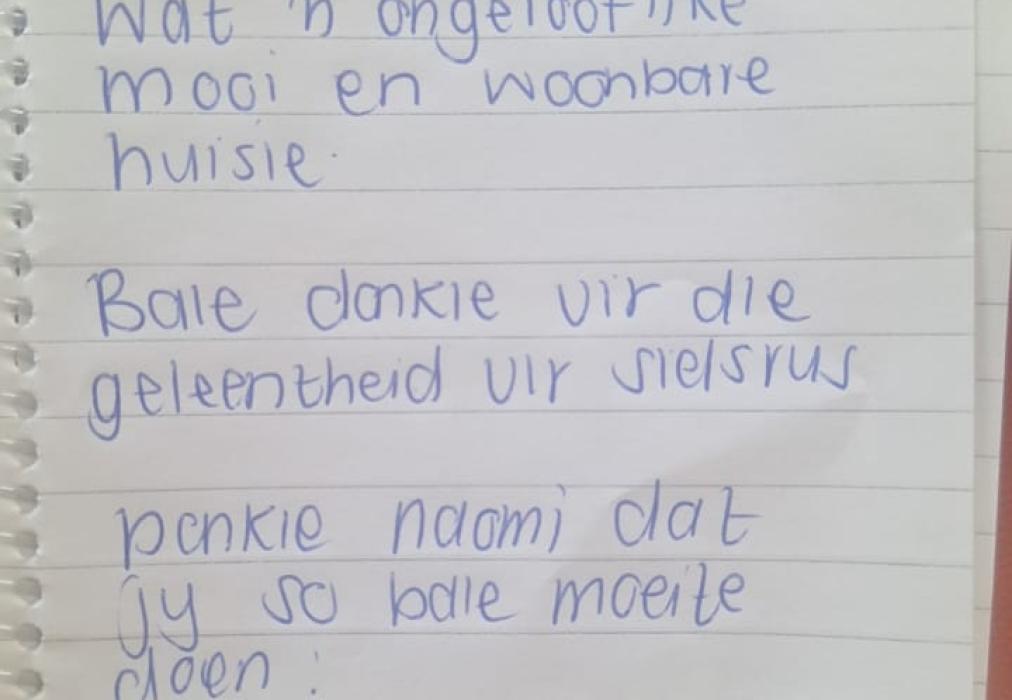 Wat 'n ongelooflike
mooi en woonbare
huisie.
Baie dankie vir die
geleentheid vir sielsrus
Dankie naomi dat
jy so baie moeite
doen :